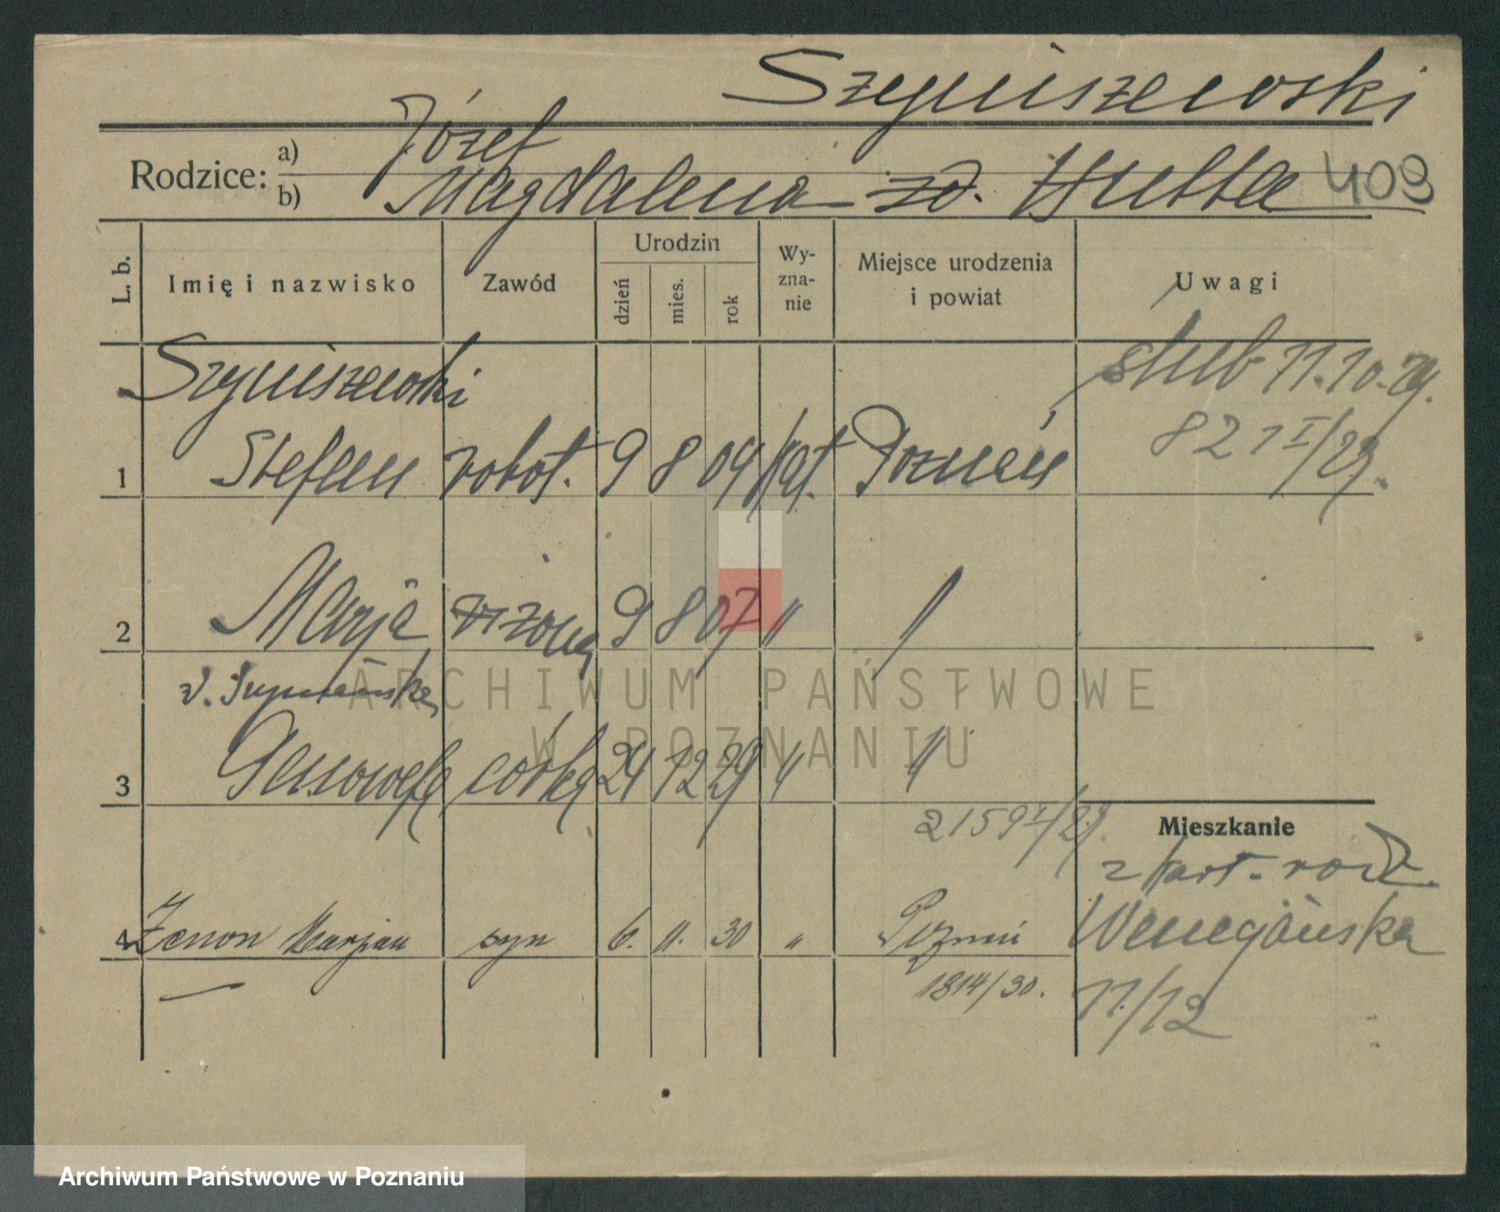 Szyniszewski
Rodzice:
a) Józef
b) Magdalena zd. Hutta 409
L. b. Imię i nazwisko Zawód Urodzin dzień mies. rok Wy-zna-nie Miejsce urodzenia i powiat Uwagi
Szyniszewski ślub 11.10.29.
1 Stefan robot. 9 8 04 kat. Poznań 821 I/29.
2 Marja żona 9 8 07 "
3 Genowefa córka 24 12 29 " "
2159 I/29. Mieszkanie
z kart. rodz.
4 Zenon Marjan syn 6. 11. 30 " Poznań Wenecjańska
1814/30. 11/12
ARCHIWUM PAŃSTWOWE
W POZNANIU
Archiwum Państwowe w Poznaniu